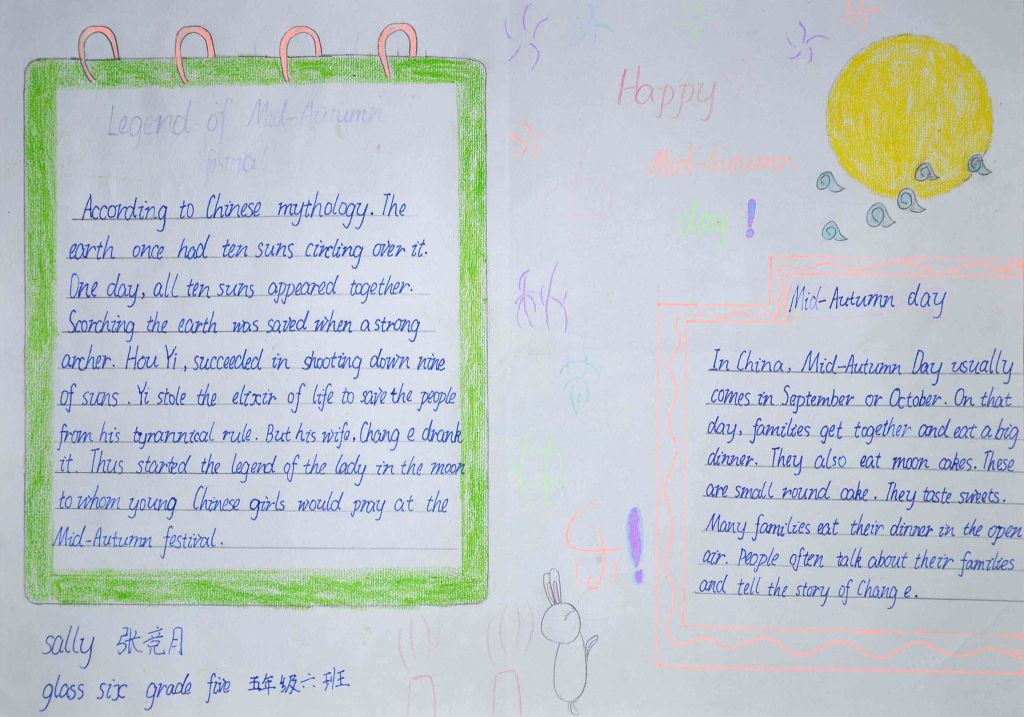 Legend of Mid-Autumn
festival
According to Chinese mythology. The
earth once had ten suns circling over it.
One day, all ten suns appeared together.
Scorching the earth was saved when a strong
archer. Hou Yi, succeeded in shooting down nine
of suns. Yi stole the elixir of life to save the people
from his tyrannical rule. But his wife, Chang e drank
it. Thus started the legend of the lady in the moon
to whom young Chinese girls would pray at the
Mid-Autumn festival.
sally 张竞月
glass six grade five 五年级六班
Happy
Mid-Autumn
day!
秋
快
乐!
Mid-Autumn day
In China, Mid-Autumn Day usually
comes in September or October. On that
day, families get together and eat a big
dinner. They also eat moon cakes. These
are small round cake. They taste sweets.
Many families eat their dinner in the open
air. People often talk about their families
and tell the story of Chang e.